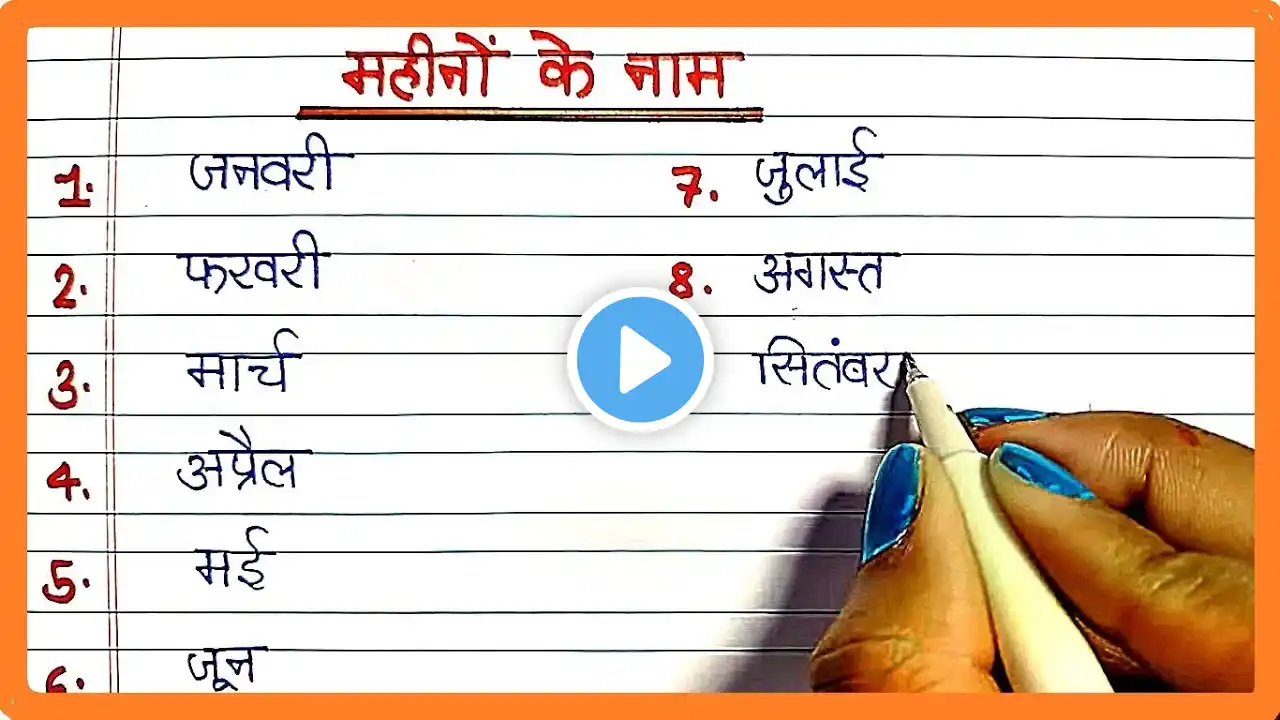 महीनों के नाम
1. जनवरी
2. फरवरी
3. मार्च
4. अप्रैल
5. मई
6. जून
7. जुलाई
8. अगस्त
सितंबर